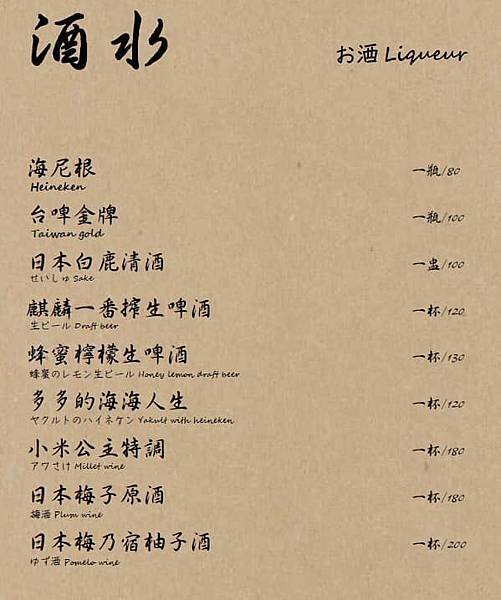 酒水
お酒 Liqueur
海尼根 一瓶/80
Heineken
台啤金牌 一瓶/100
Taiwan gold
日本白鹿清酒 一盅/100
せいしゅ Sake
麒麟一番搾生啤酒 一杯/120
生ビール Draft beer
蜂蜜檸檬生啤酒 一杯/130
蜂蜜のレモン生ビール Honey lemon draft beer
多多的海海人生 一杯/120
ヤクルトのハイネケン Yakult with heineken
小米公主特調 一杯/180
アワさけ Millet wine
日本梅子原酒 一杯/180
梅酒 Plum wine
日本梅乃宿柚子酒 一杯/200
ゆず酒 Pomelo wine